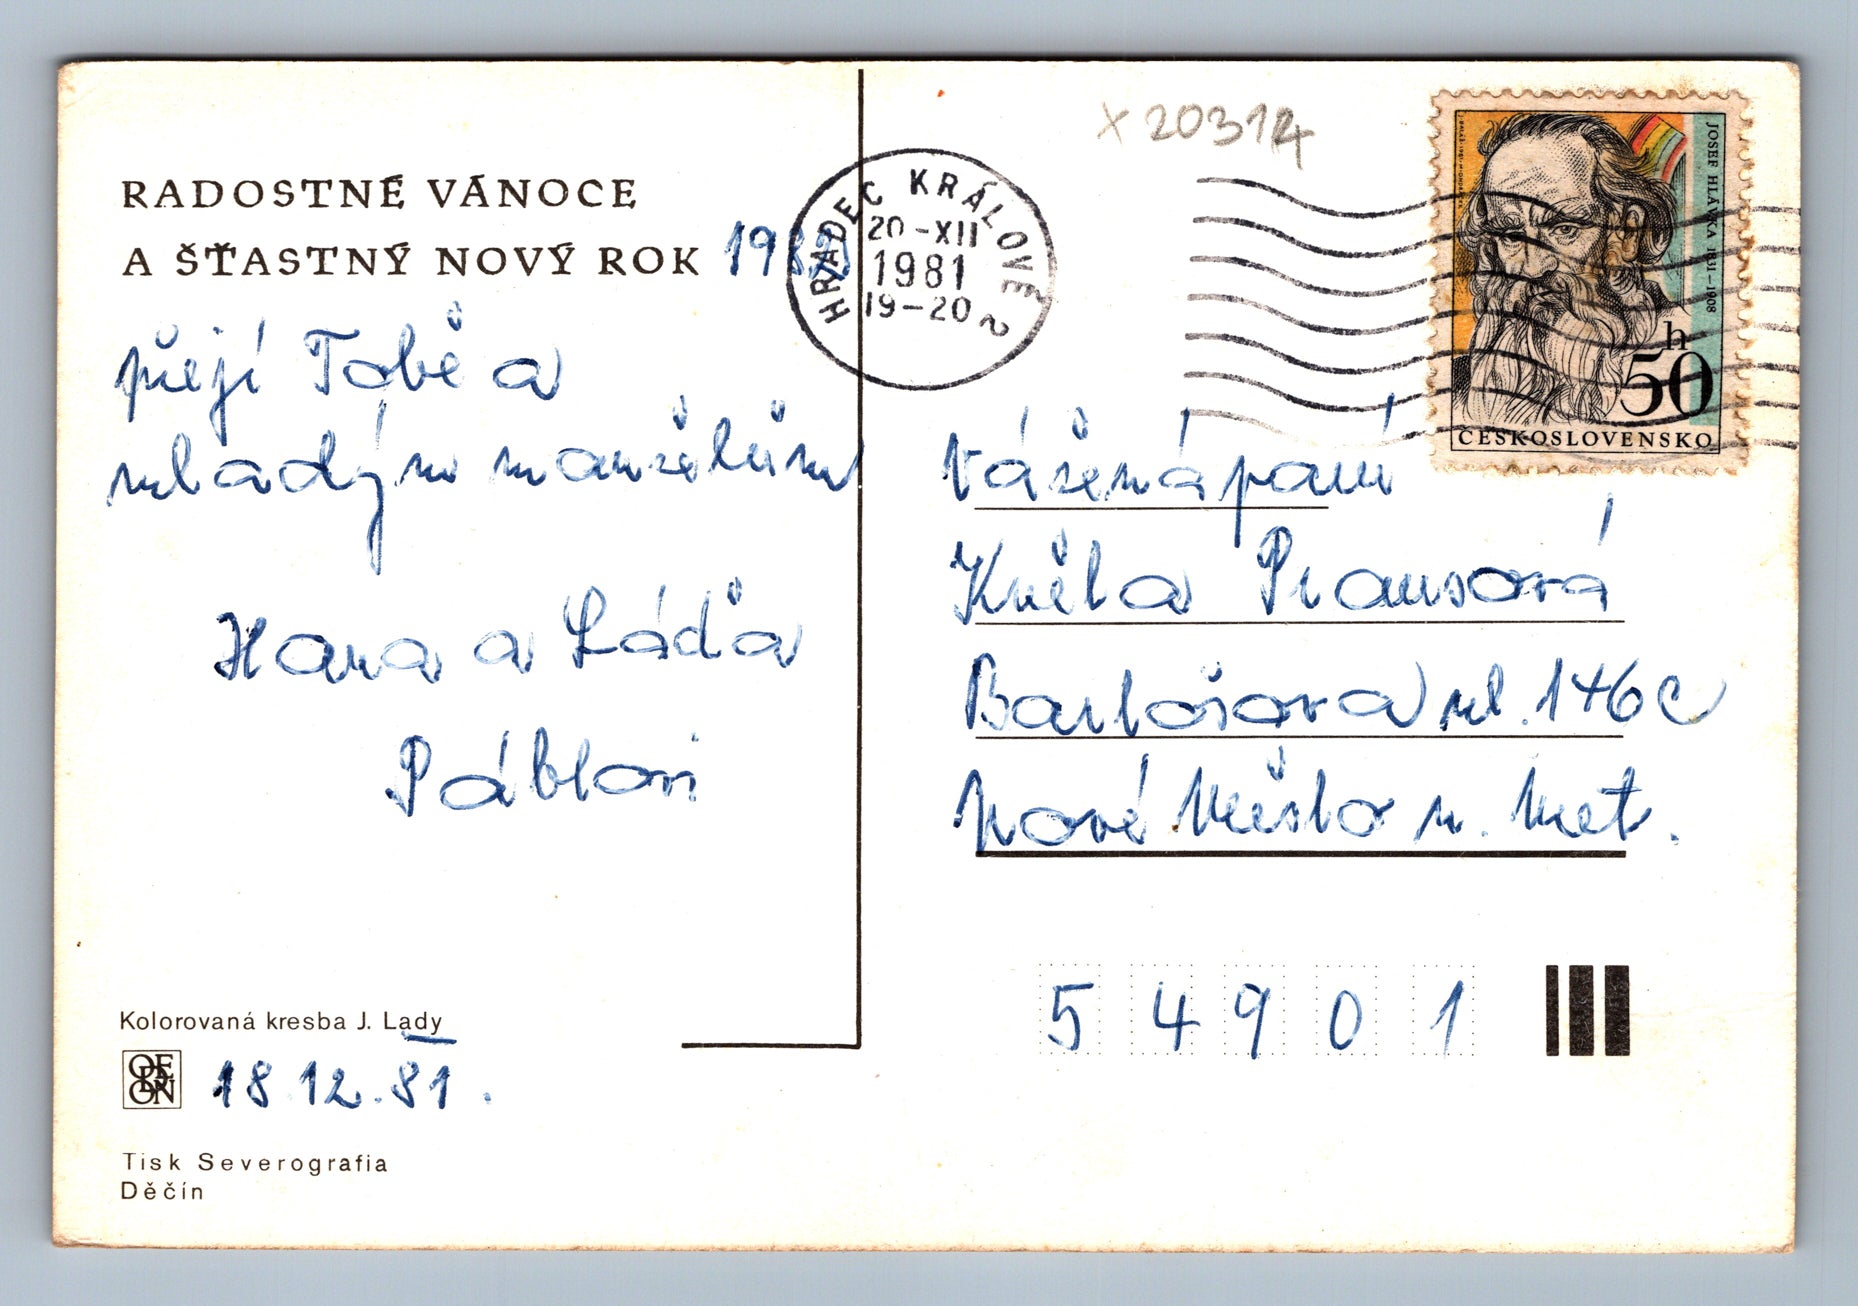 RADOSTNÉ VÁNOCE
A ŠŤASTNÝ NOVÝ ROK 1982
přejí Tobě a
mladým manželům
Hana a Láďa
Páblovi
Kolorovaná kresba J. Lady
ODEON
18.12.81.
Tisk Severografia
Děčín
x 20314
HRADEC KRÁLOVÉ 2
20-XII
1981
19-20
JOSEF HLÁVKA 1831-1908
50 h
ČESKOSLOVENSKO
Vážená paní
Květa Prausová
Bartošova ul. 146 c
Nové Město n. Met.
54901